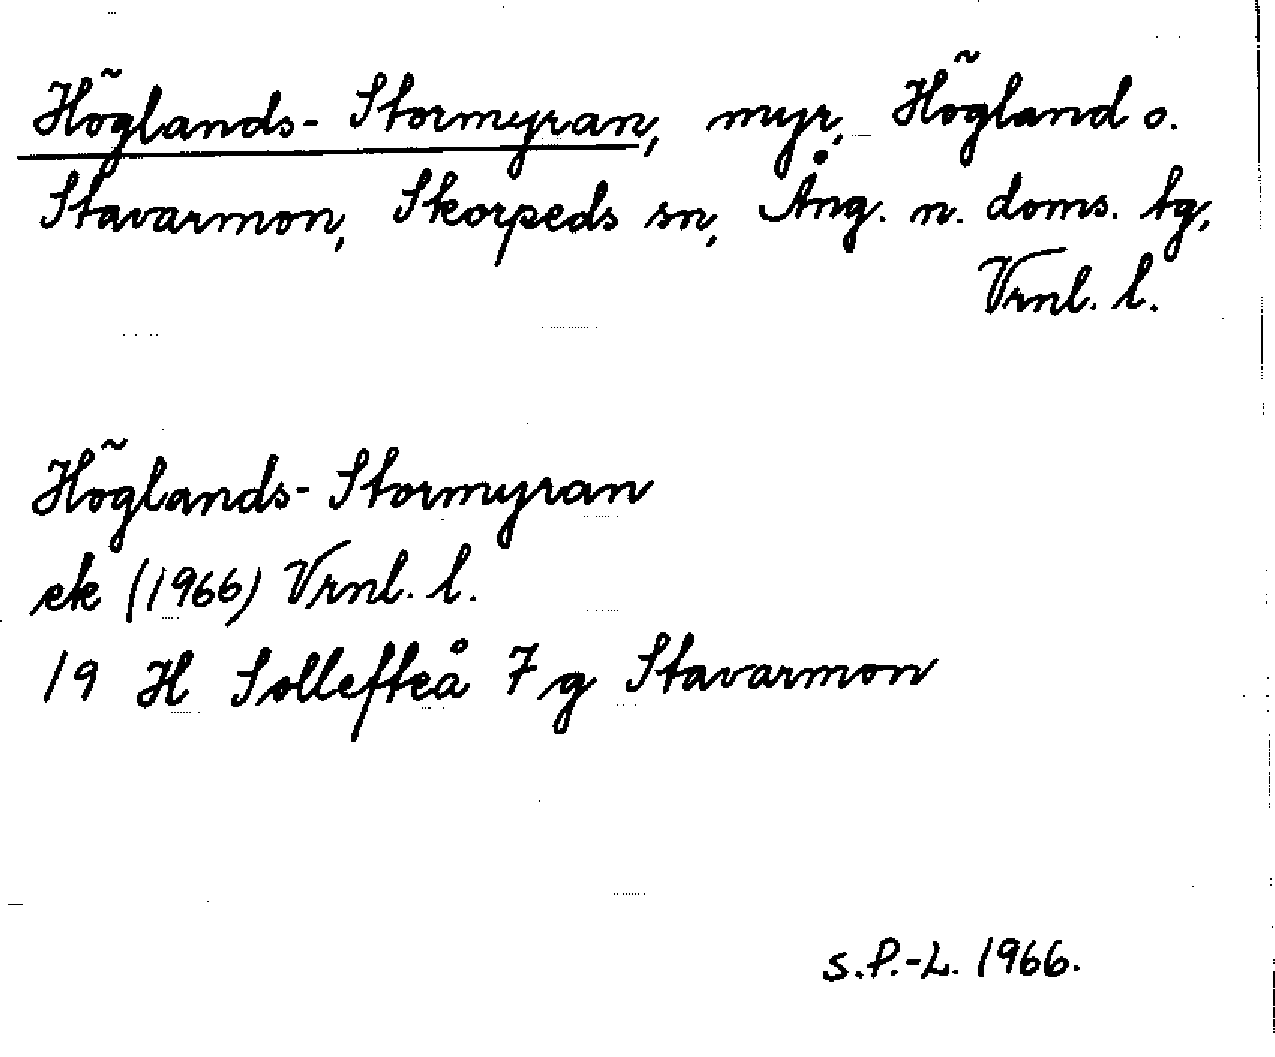 Höglands-Stormyran, myr, Högland o.
Stavarmon, Skorpeds sn, Ång. n. doms. tg,
Vrnl. l.
Höglands-Stormyran
ek (1966) Vrnl. l.
19 H Sollefteå 7 g Stavarmon
S.P.-L. 1966.